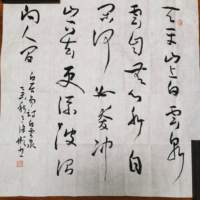 天平山上白雲泉
雲自無心水自
閑何必奔冲
山下去更添波浪
向人間
白居易詩白雲泉